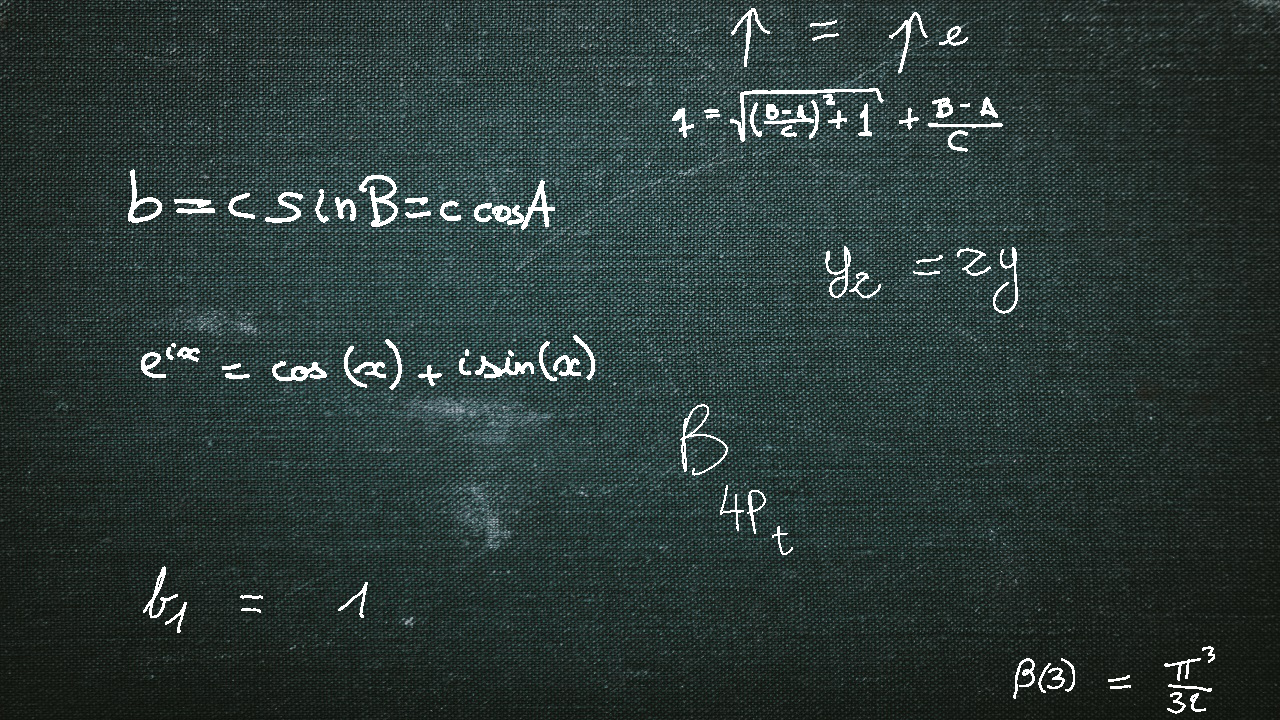 ↑ = ↑e
q = √((B-A)/C)² + 1) + (B-A)/C
b = c sin B = c cos A
y₂ = zy
e^{ix} = cos(x) + i sin(x)
B_{4P_t}
b₁ = 1
β(3) = π³/32